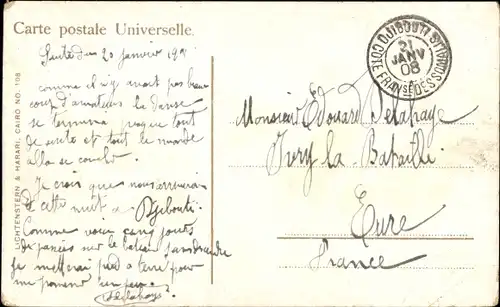 Carte postale Universelle.
Suite du 20 janvier 190
comme il n'y avait pas beau
coup d'amateurs la danse
se termina presque tout
de suite et tout le monde
alla se coucher
Je crois que nous arriverons
cette nuit à Djibouti
Comme voici cinq jours
passés sur le bateau sans
je mettrai pied à terre pour
me promener un peu
EDelahaye
LICHTENSTERN & HARARI, CAIRO NO. 108
DJIBOUTI
COTE FRANSE DES SOMALIS
21
JANV
08
Monsieur Edouard Delahaye
Ivry-la-Bataille
Eure
France